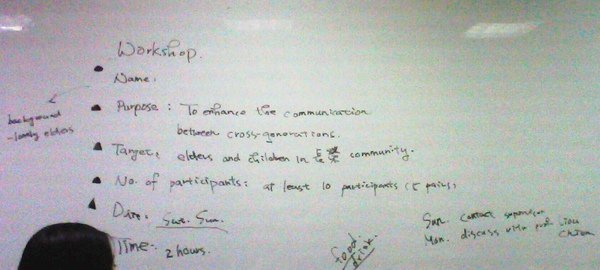 Workshop.
Name.
background
- lonely elders
Purpose: To enhance the communication
between cross-generations.
Target: elders and children in 長發 community.
No. of participants: at least 10 participants (5 pairs)
Date: Sat. Sun.
Time: 2 hours.
food.
drink.
Sun. contact supervisor
Mon. discuss with prof